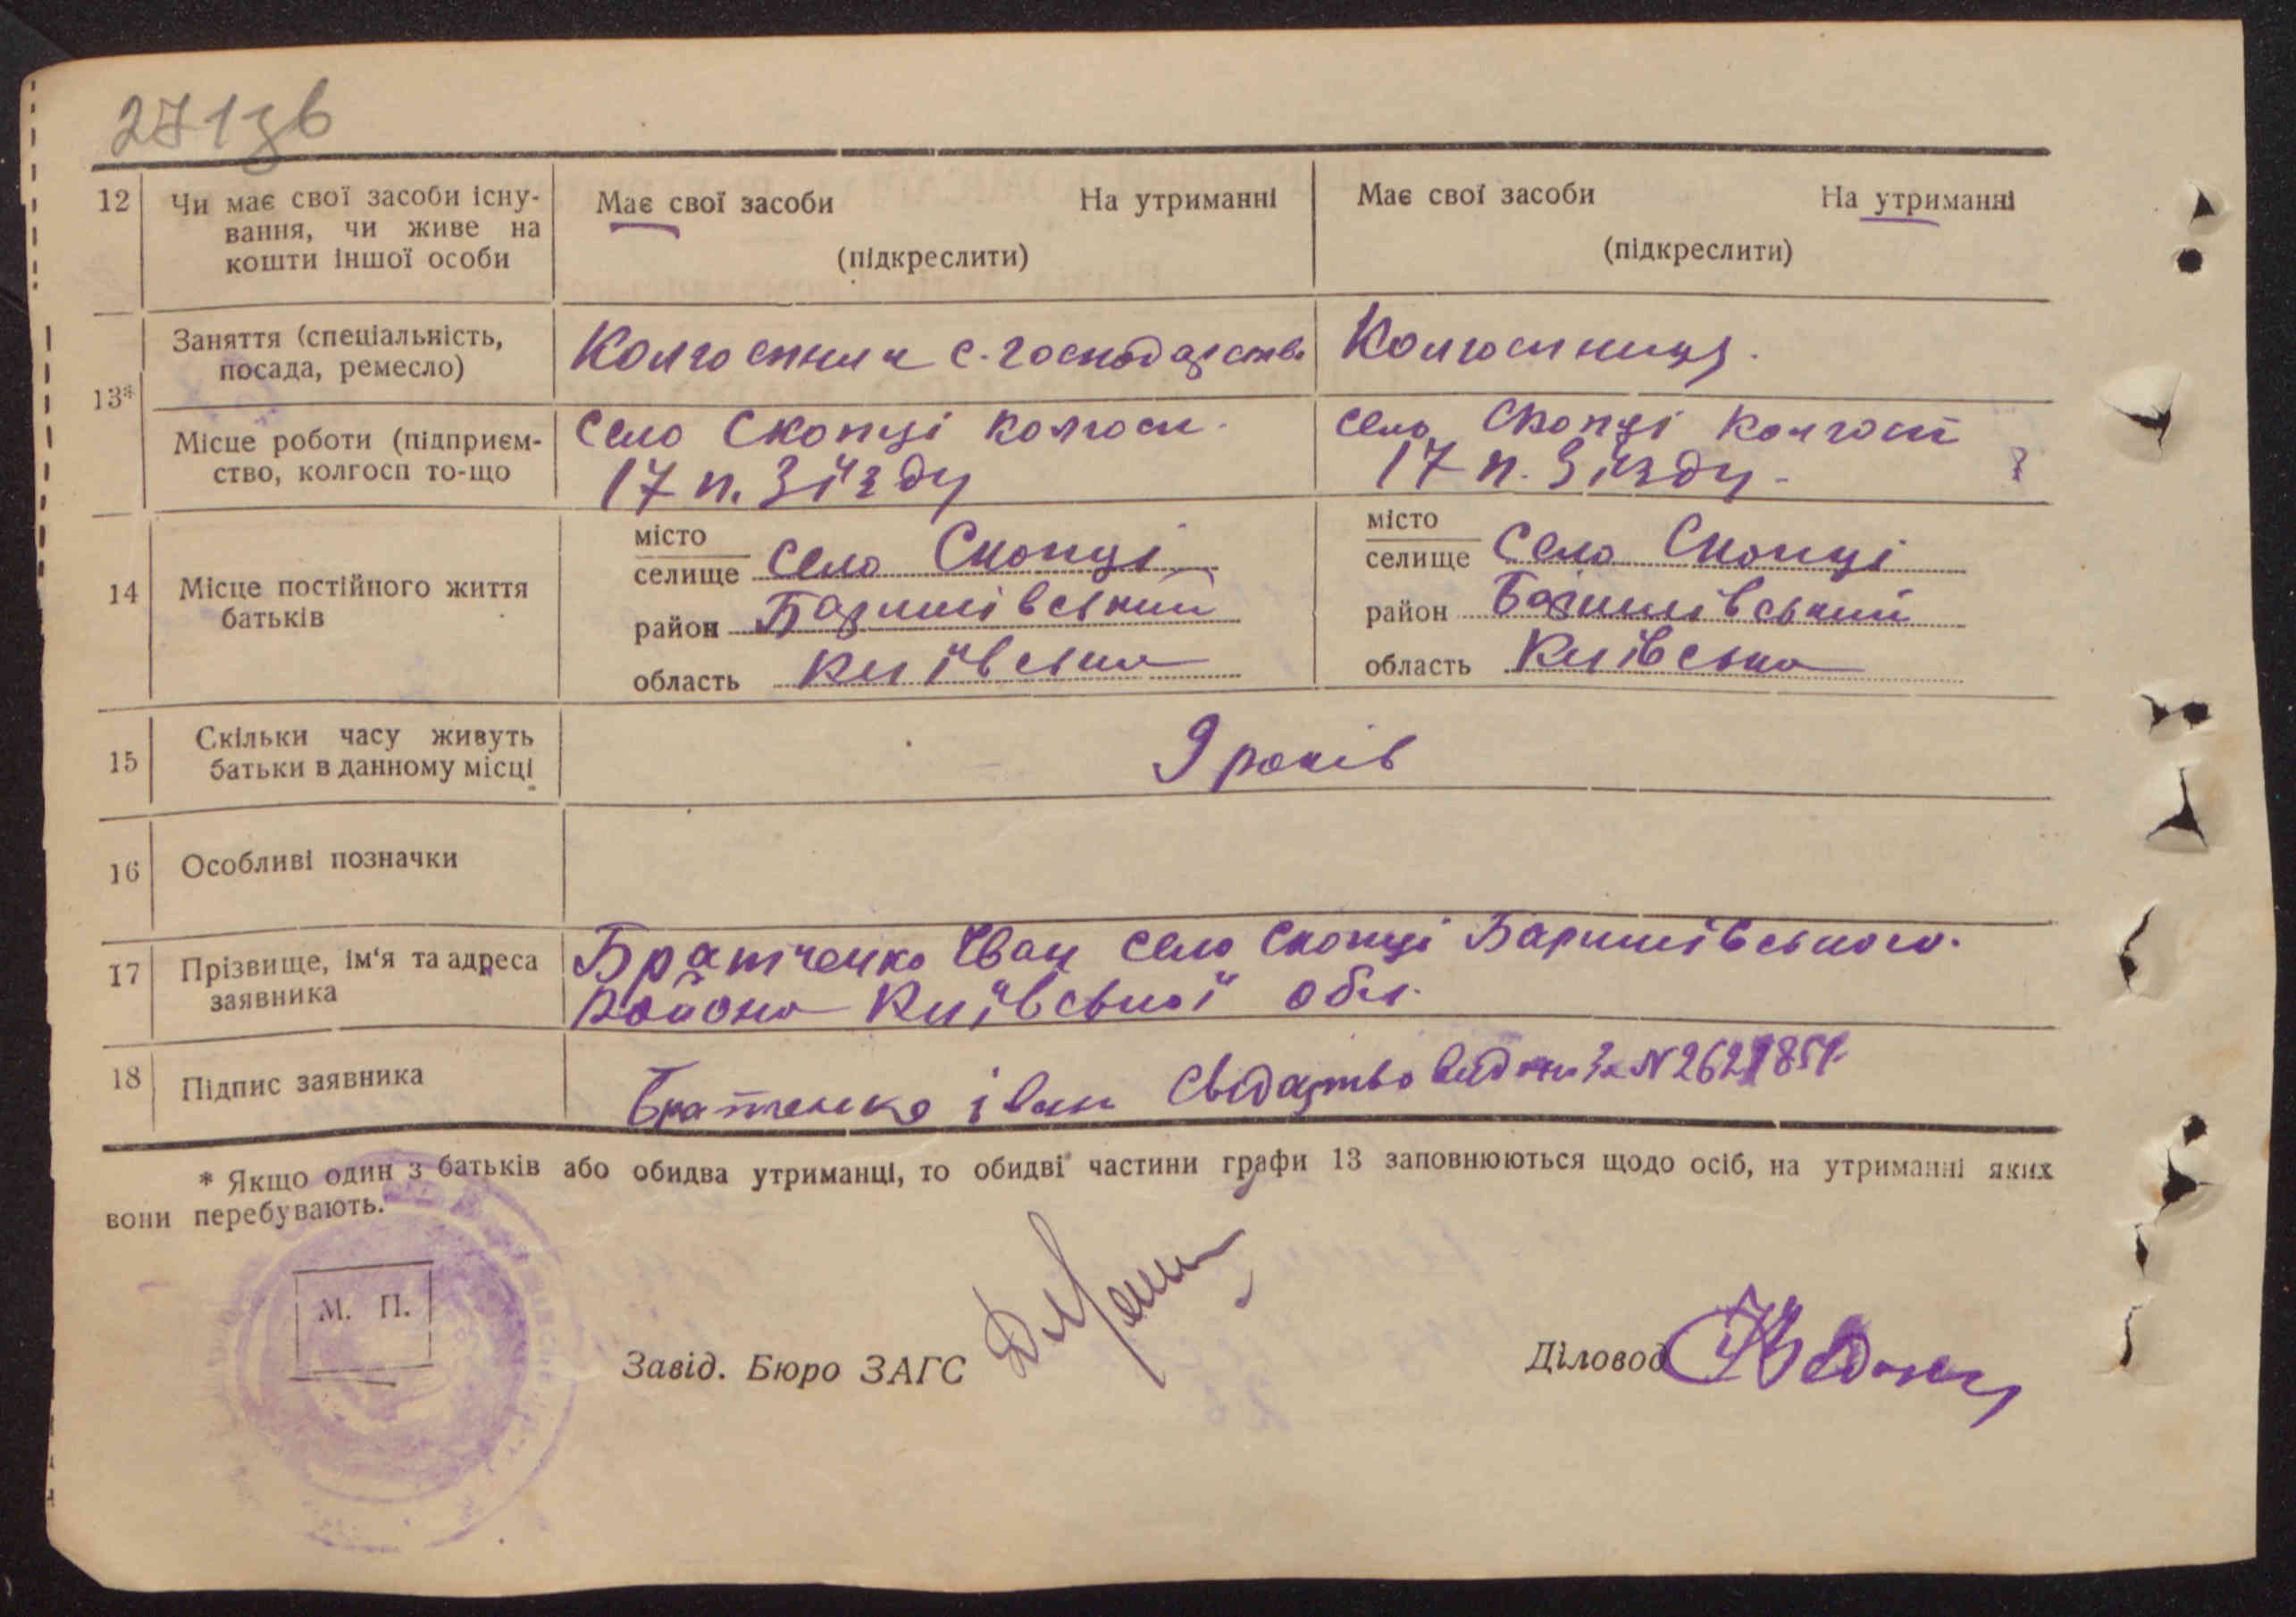 271зв
12 Чи має свої засоби існування, чи живе на кошти іншої особи
Має свої засоби На утриманні
(підкреслити)
Має свої засоби На утриманні
(підкреслити)
13*
Заняття (спеціальність,
посада, ремесло)
Колгоспник с-господарства
Колгоспниця.
Місце роботи (підприєм-
ство, колгосп то-що
Село Скопці колгосп.
17 п. Зїзду
село Скопці колгосп
17 п. Зїзду.
14 Місце постійного життя
батьків
місто
селище Село Скопці
район Баришівський
область Київська
місто
селище Село Скопці
район Баришівський
область Київська
15 Скільки часу живуть
батьки в данному місці
9 років
16 Особливі позначки
17 Прізвище, ім'я та адреса
заявника
Братченко Іван село Скопці Баришівського
району Київської обл.
18 Підпис заявника
Братченко іван Свідоцтво видано за №
* Якщо один з батьків або обидва утриманці, то обидві частини графи 13 заповнюються щодо осіб, на утриманні яких
вони перебувають.
М. П.
Завід. Бюро ЗАГС
Діловод